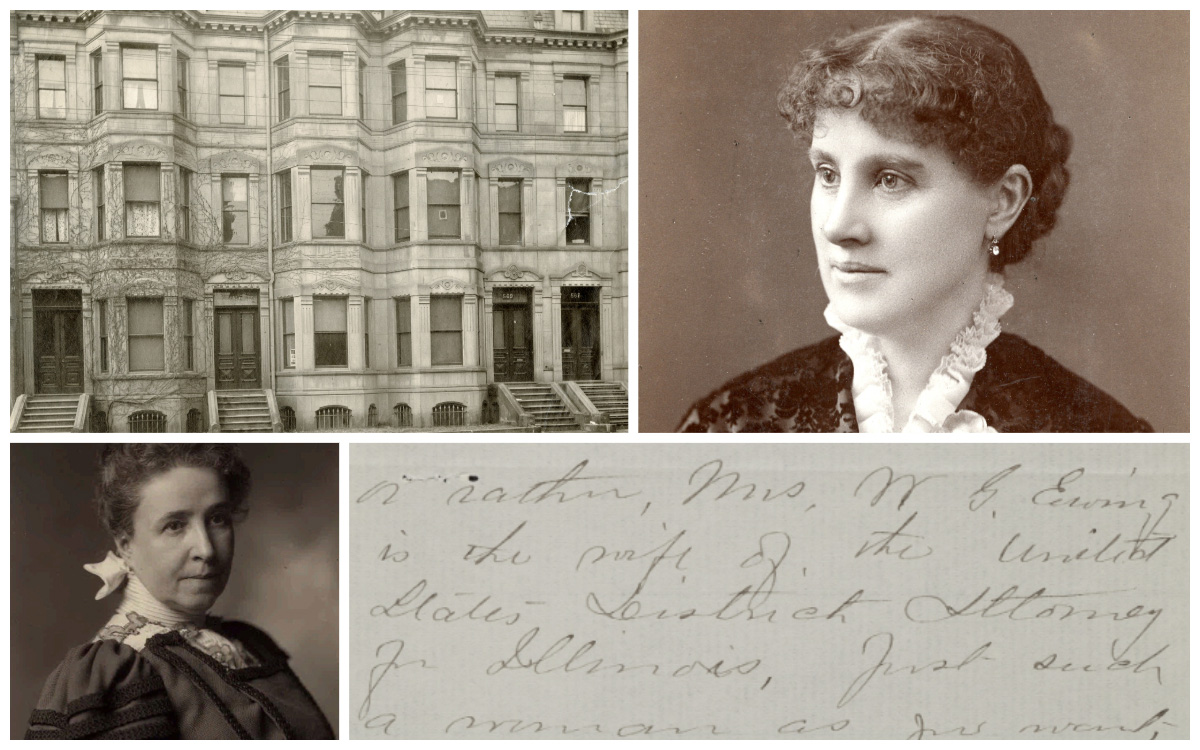 or rather, Mrs, W G. Ewing
is the wife of the United
States District Attorney
for Illinois, Just such
a woman as you want,